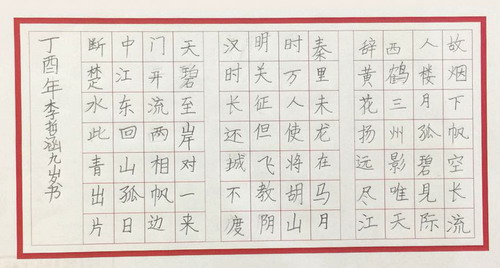 故人西辞
黄鹤楼烟
花三月下
扬州孤帆
远影碧空
尽唯见长
江天际流
秦时明汉
时关万里
长征人未
还但使龙
城飞将在
不教胡马
度阴山月
天门中断
楚江开碧
水东流至
此回两岸
青山相对
出孤帆一
片日边来
丁酉年李哲涵九岁书